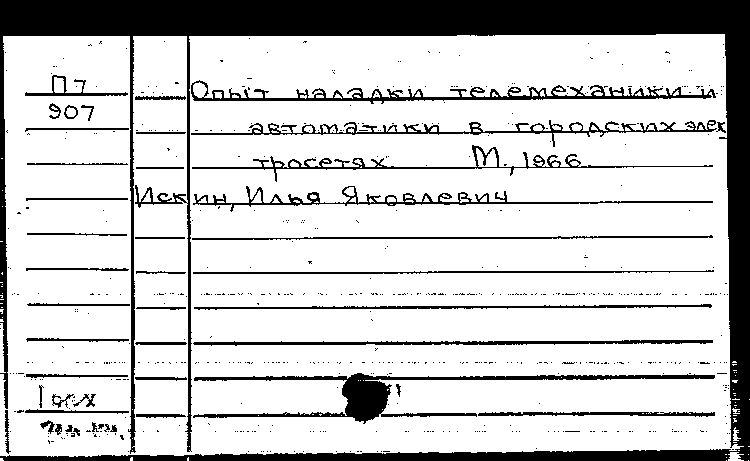 П7
907
Опыт наладки телемеханики и
автоматики в городских элек
тросетях. М., 1966.
Искин, Илья Яковлевич